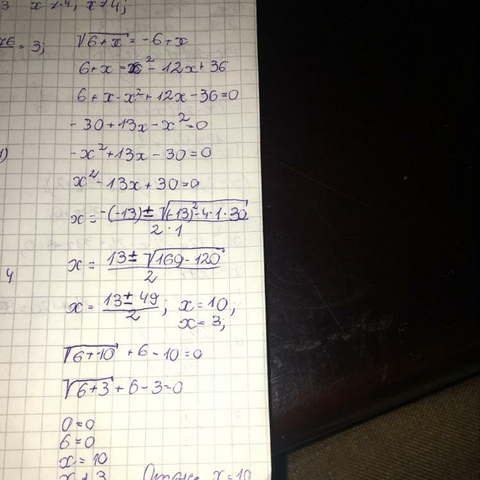 3 x≠-4, x≠4;
= 3;
√6+x = -6+x
6+x = x² - 12x + 36
6+x-x²+12x-36=0
-30+13x-x²=0
-x²+13x-30=0
x²-13x+30=0
x = -(-13)±√(-13)²-4·1·30 / 2·1
x = 13±√169-120 / 2
4
x = 13±49 / 2 ; x=10,
x=3;
√6+10 + 6-10=0
√6+3 + 6-3=0
0=0
6=0
x=10
x≠3 x=10